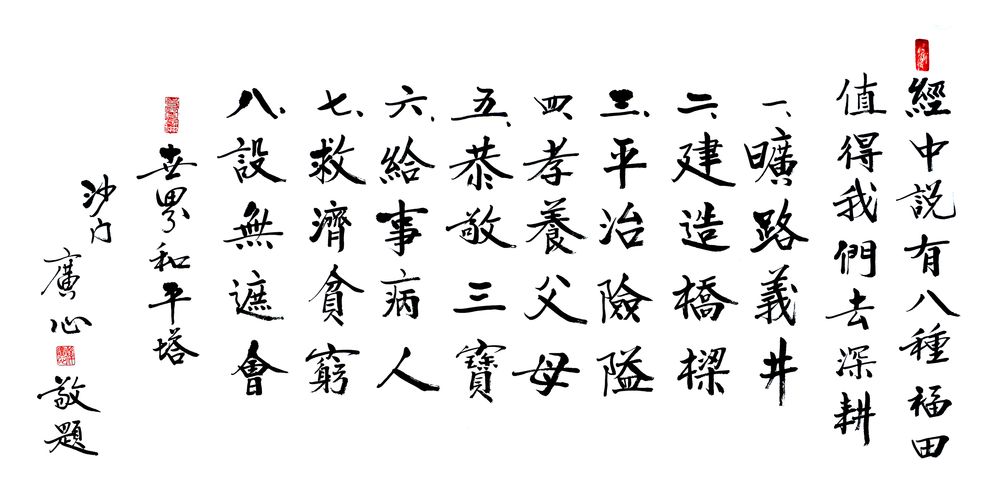 經中説有八種福田
值得我們去深耕
一、曠路義井
二、建造橋樑
三、平治險隘
四、孝養父母
五、恭敬三寶
六、給事病人
七、救濟貧窮
八、設無遮會
世界和平塔
沙門
廣心
敬題